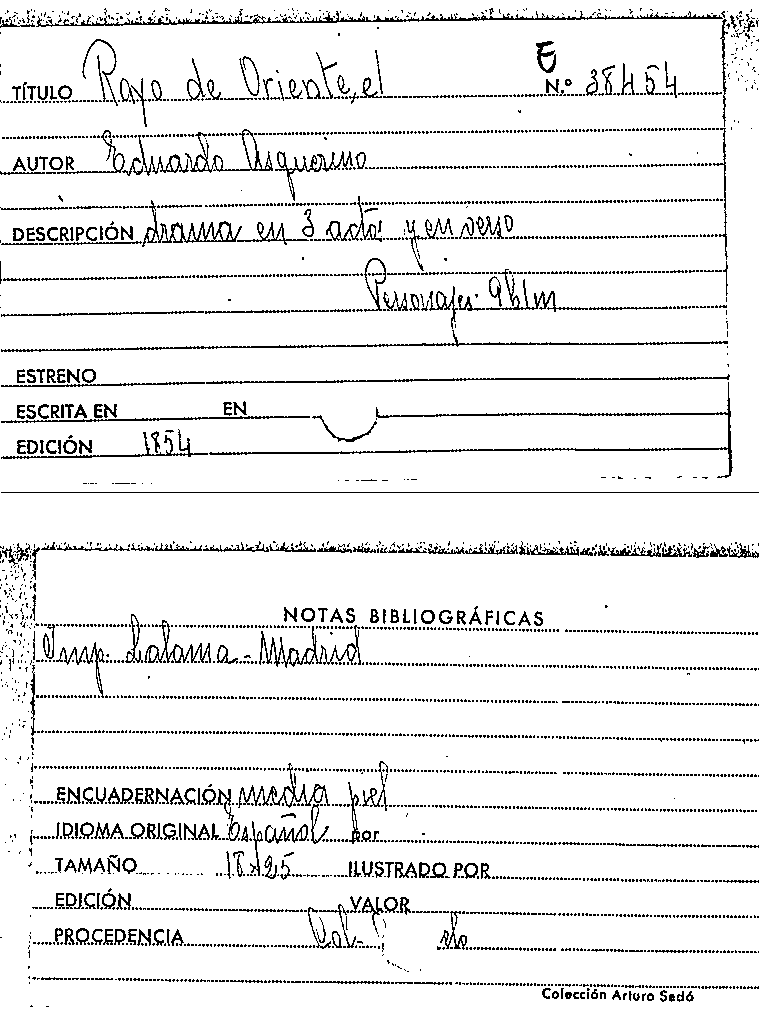 E
TÍTULO Rayo de Oriente, el N.º 38454
AUTOR Eduardo Asquerino
DESCRIPCIÓN drama en 3 actos y en verso
Personajes: 9h1m
ESTRENO
ESCRITA EN EN
EDICIÓN 1854
NOTAS BIBLIOGRÁFICAS
Imp. Lalama - Madrid
ENCUADERNACIÓN media piel
IDIOMA ORIGINAL Español por
TAMAÑO 18x25 ILUSTRADO POR
EDICIÓN VALOR
PROCEDENCIA Col.
Colección Arturo Sedó